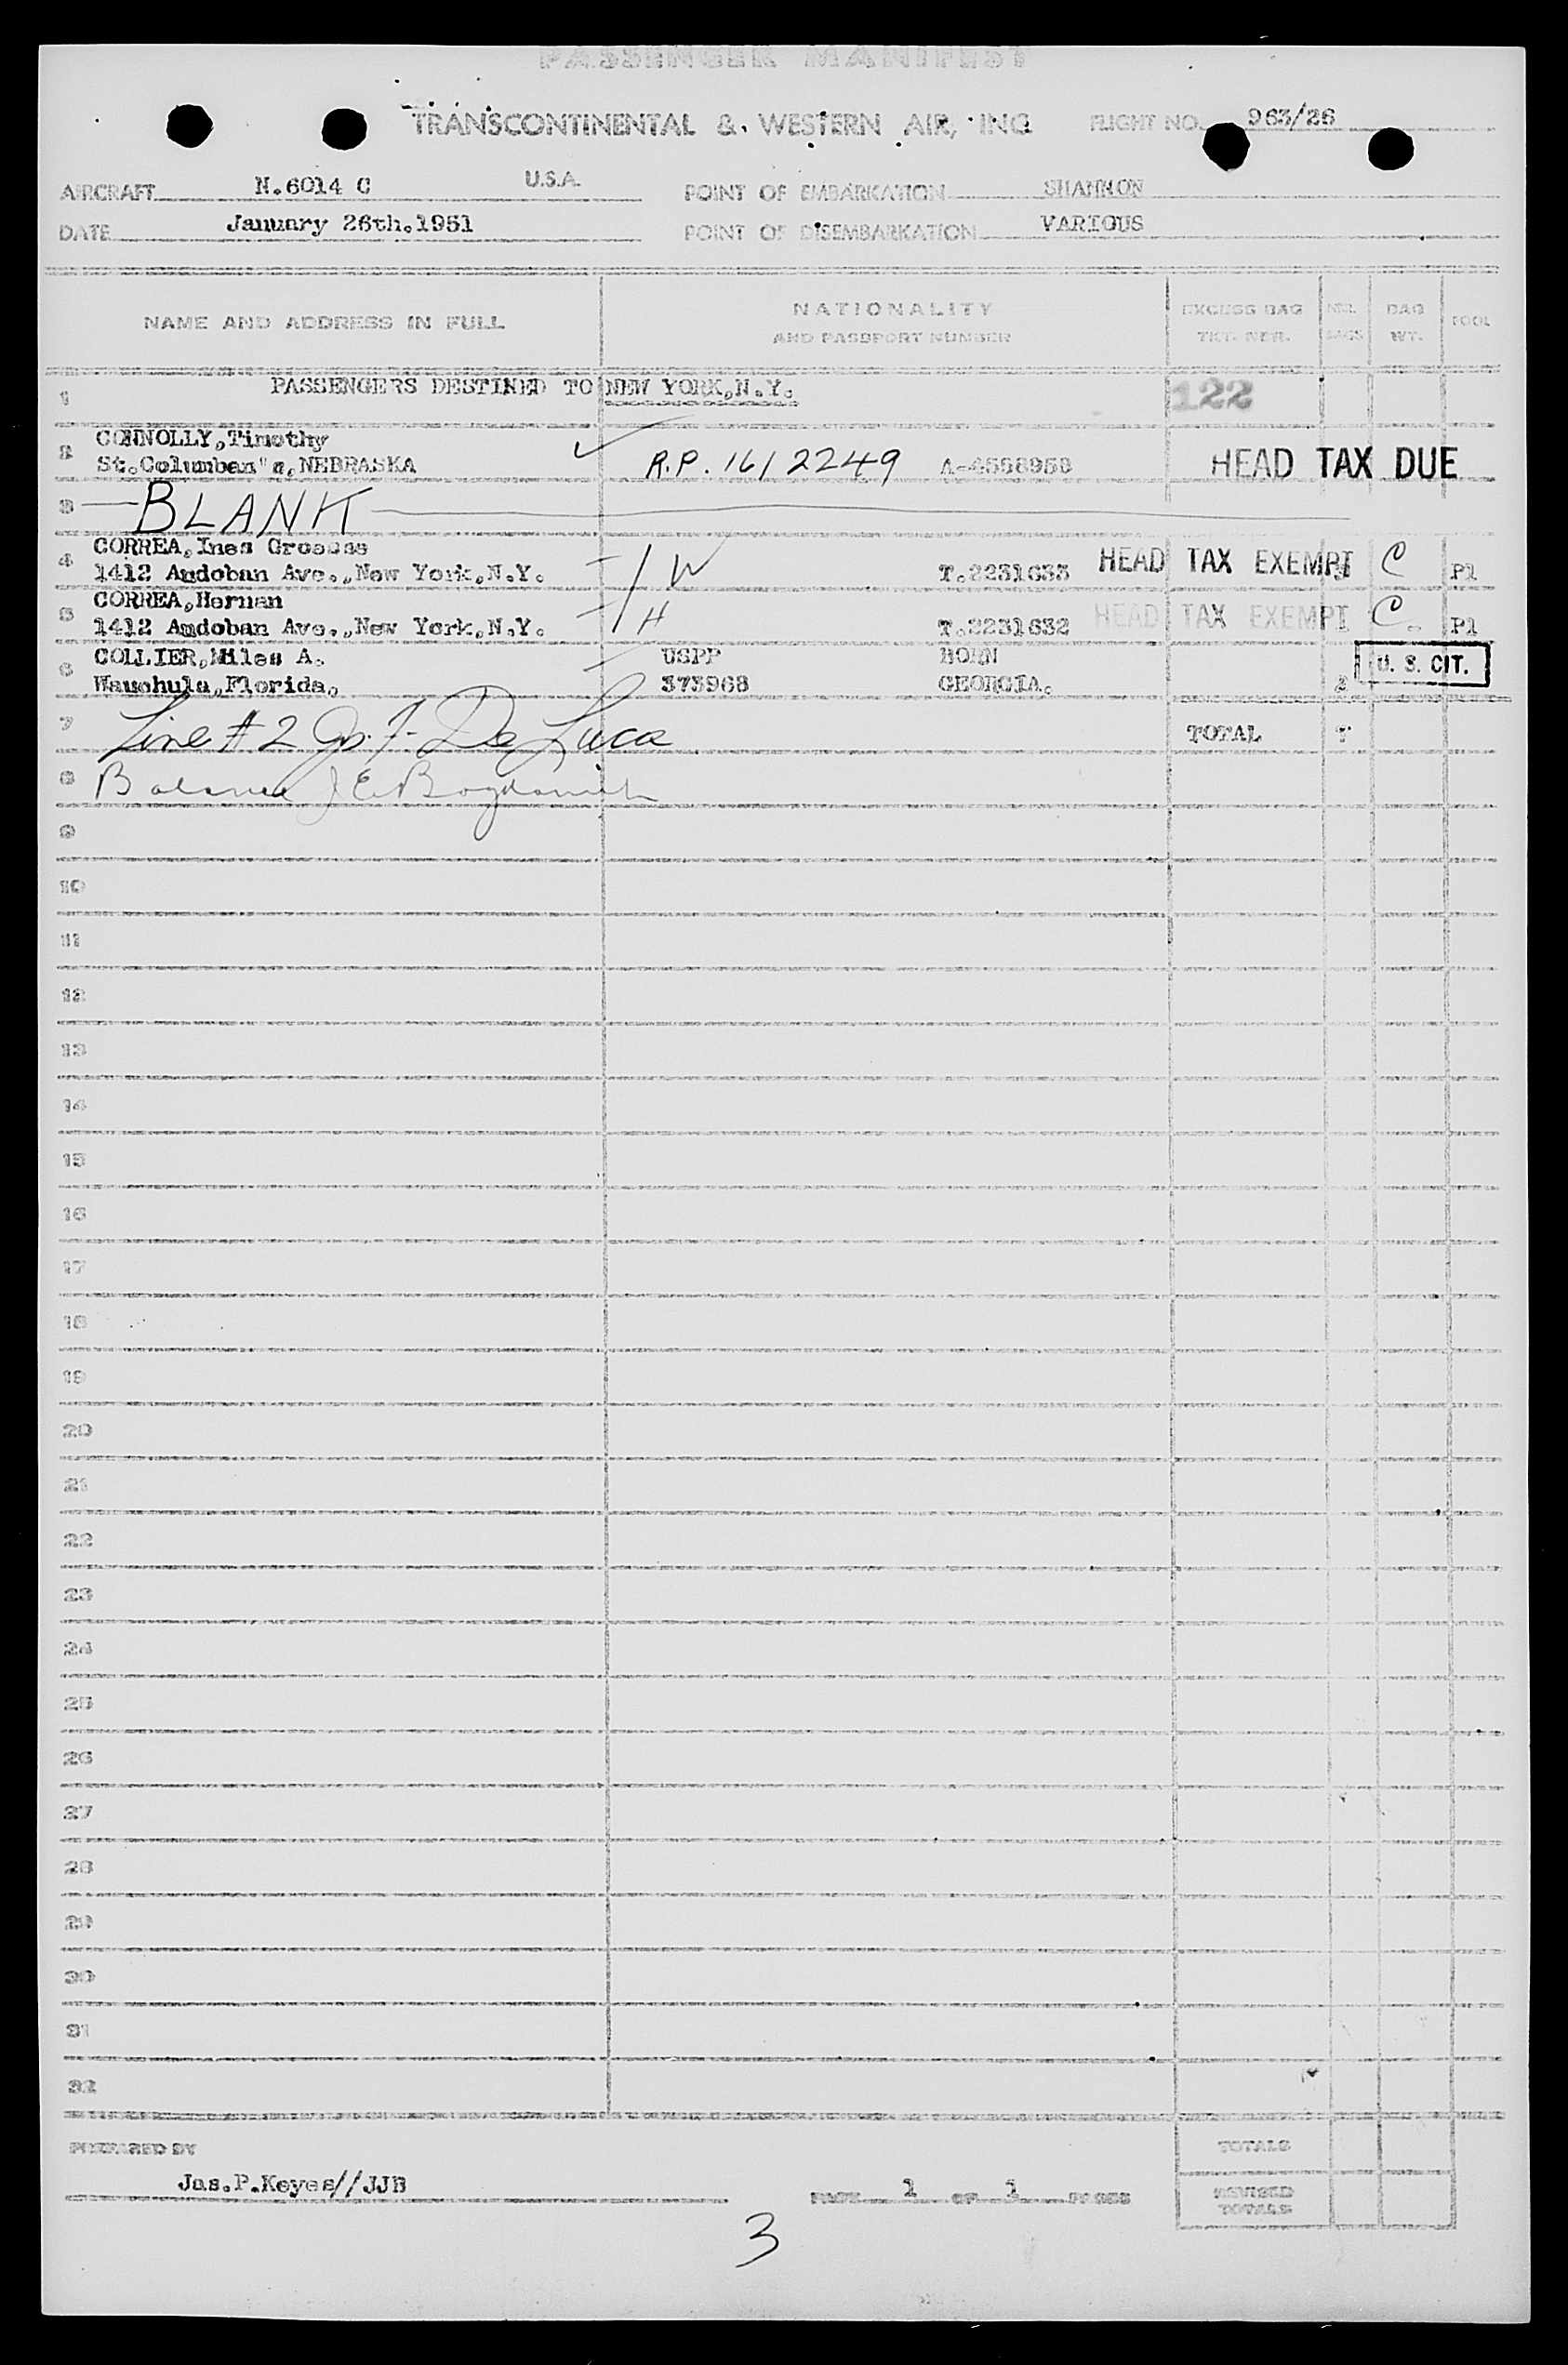 PASSENGER MANIFEST
TRANSCONTINENTAL & WESTERN AIR, INC.
FLIGHT NO. 963/26
AIRCRAFT N.6014 C U.S.A.
POINT OF EMBARKATION SHANNON
DATE January 26th.1951
POINT OF DISEMBARKATION VARIOUS
NAME AND ADDRESS IN FULL
NATIONALITY
AND PASSPORT NUMBER
EXCESS BAG
TKT. NBR.
NBR.
BAGS
BAG
WT.
POOL
1 PASSENGERS DESTINED TO NEW YORK,N.Y. 122
2 CONNOLLY,Timothy
St.Columban"s,NEBRASKA R.P. 1612249 HEAD TAX DUE
3 BLANK
4 CORREA,Ines
1412 Audoban Ave.,New York,N.Y. W T.2231633 HEAD TAX EXEMPT C P1
5 CORREA,Hernan
1412 Audoban Ave.,New York,N.Y. H T.2231632 HEAD TAX EXEMPT C P1
6 COLLIER,Miles A. USPP BORN U. S. CIT.
Wauchula,Florida. 373968 GEORGIA.
7 Line # 2 De Luca TOTAL
8 Balance J E
9
10
11
12
13
14
15
16
17
18
19
20
21
22
23
24
25
26
27
28
29
30
31
32
PREPARED BY
Jas.P.Keyes//JJB
PAGE 1 OF 1 PAGES
TOTALS
REVISED
TOTALS
3